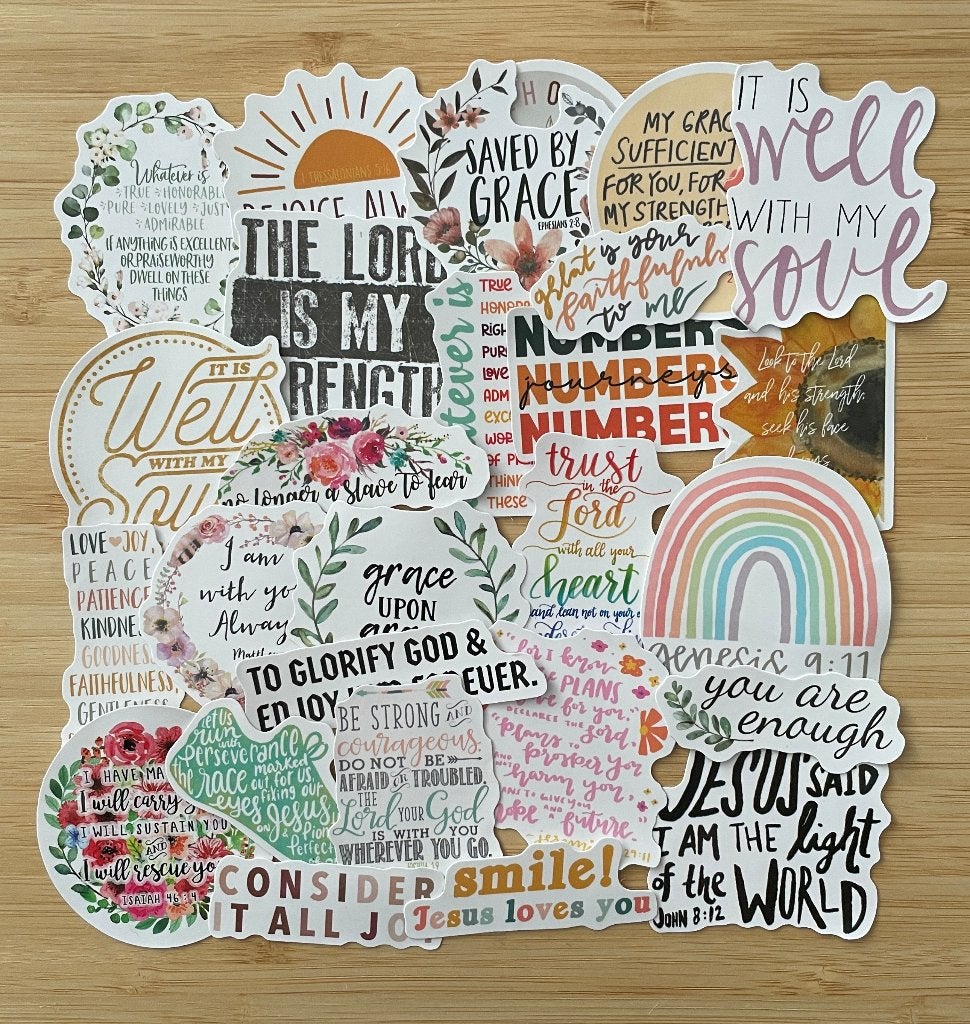 Whatever is
TRUE HONORABL
PURE LOVELY JUST
ADMIRABLE
IF ANYTHING IS EXCELLENT
OR PRAISEWORTHY
DWELL ON THESE
THINGS
1 THESSALONIANS 5:16
REJOICE ALW
SAVED BY
GRACE
EPHESIANS 2:8
HO
MY GRAC
SUFFICIENT
FOR YOU, FOR
MY STRENGTH
IT IS
well
WITH MY
soul
THE LORD
IS MY
RENGTH
great is your
faithfulness
to me
atever is
TRUE
HONOR
RIGH
PUR
LOVE
ADM
EXCE
WOR
OF P
THINK
THESE
NUMBERS
NUMBERS
journeys
NUMBERS
Look to the Lord
and his strength;
seek his face
IT IS
Well
WITH MY
Sou
no longer a slave to fear
trust
in the
Lord
with all your
heart
and lean not on your
genesis 9:11
LOVE JOY,
PEACE
PATIENCE
KINDNE
GOODNESS
FAITHFULNESS,
GENTLENESS
I am
with yo
Alway
Matthew
grace
UPON
grace
TO GLORIFY GOD &
ENJOY HIM FOREVER.
"for I know
the PLANS
I have for you,"
DECLARES THE Lord,
"plans to
prosper you
AND NOT
harm you,
PLANS TO GIVE YOU
hope AND a future."
29:11
you are
enough
I HAVE MA
I will carry y
I WILL SUSTAIN YOU
AND
I will rescue yo
ISAIAH 46:4
let us
run with
perseverance
the race marked
out for us,
fixing our
eyes on Jesus
BE STRONG AND
courageous.
DO NOT BE
AFRAID OR TROUBLED.
THE
Lord YOUR God
IS WITH YOU
WHEREVER YOU GO.
JESUS SAID
I AM THE light
of the WORLD
JOHN 8:12
CONSIDER
IT ALL JO
smile!
Jesus loves you